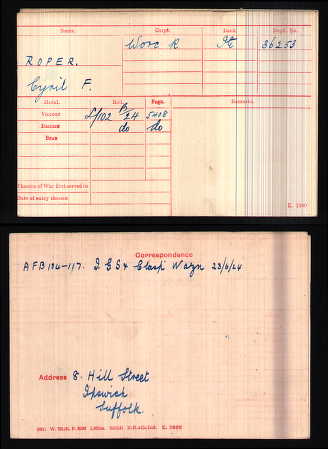 Name. Corps. Rank. Regtl. No.
Worc R. Pte 36253
ROPER.
Cyril F.
Medal. Roll. Page. Remarks.
Victory L/102 B 24 5408
British do do
Star
Theatre of War first served in
Date of entry therein
K. 1380
Correspondence
AFB 184-117. I G S & Clasp Wazn 23/6/24
Address 8. Hill Street
Ipswich
Suffolk.